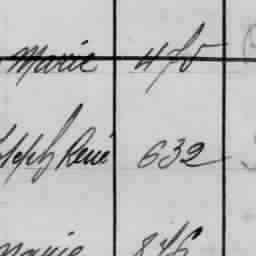 Marie 470
seph René 632
Marie 846